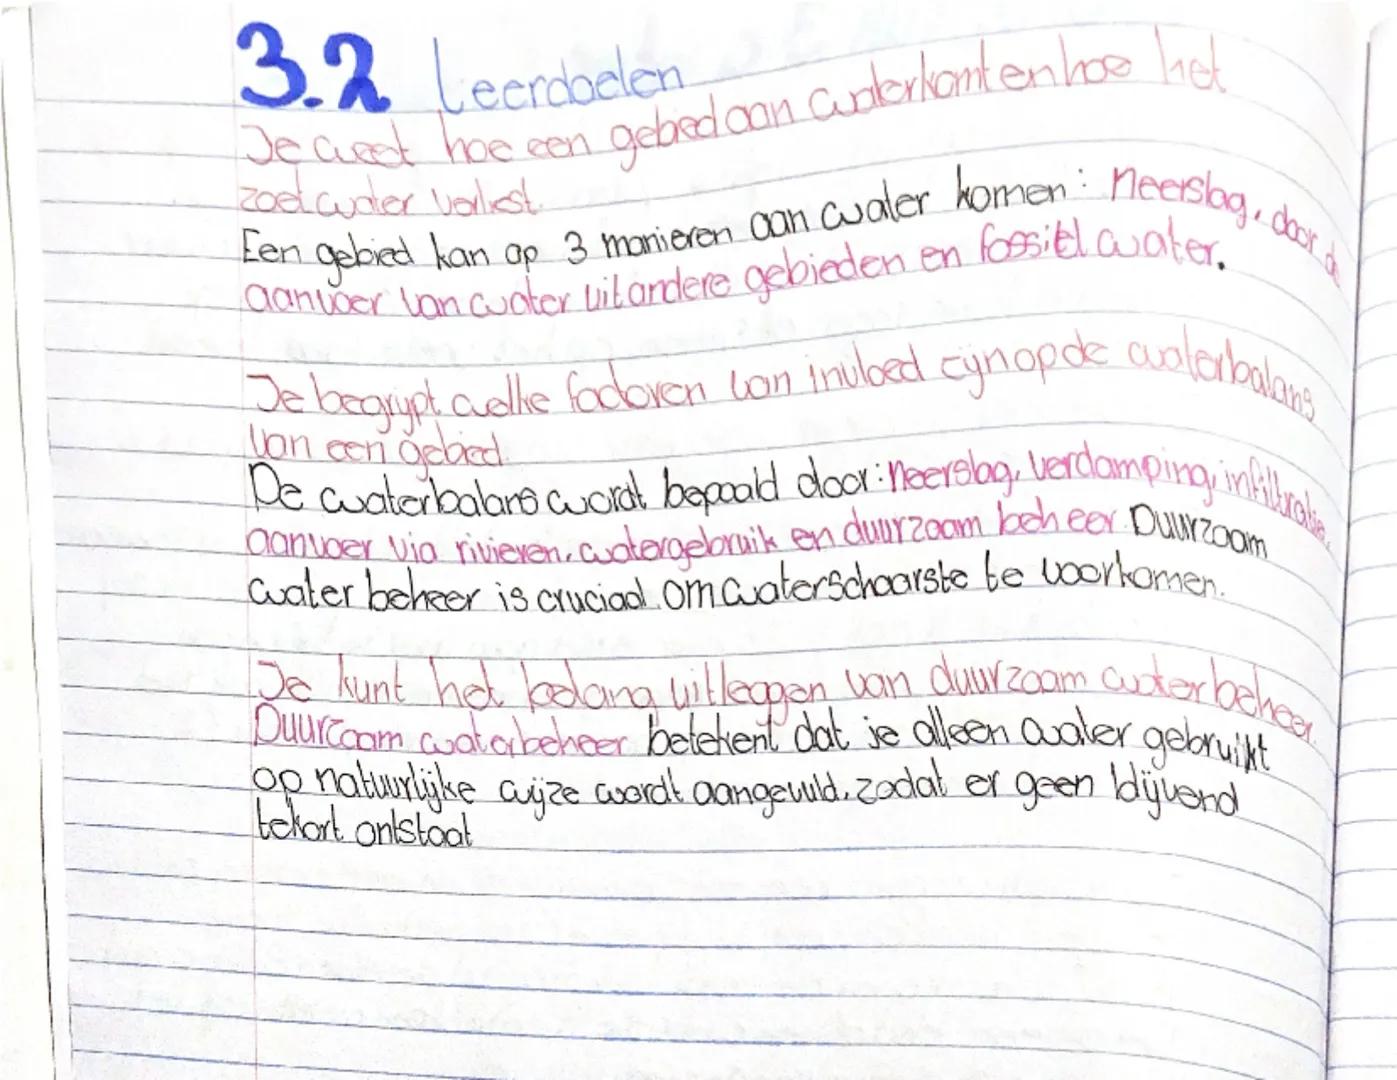 3.2 Leerdoelen
Je weet hoe een gebied aan water komt en hoe het
zoet water verliest.
Een gebied kan op 3 manieren aan water komen: Neerslag, door de
aanvoer van water uit andere gebieden en fossiel water.
Je begrijpt welke factoren van invloed zijn op de waterbalans
van een gebied.
De waterbalans wordt bepaald door: Neerslag, verdamping, infiltratie,
aanvoer via rivieren, watergebruik en duurzaam beheer. Duurzaam
water beheer is cruciaal om waterschaarste te voorkomen.
Je kunt het belang uitleggen van duurzaam waterbeheer.
Duurzaam waterbeheer betekent dat je alleen water gebruikt
op natuurlijke wijze wordt aangevuld, zodat er geen blijvend
tekort ontstaat